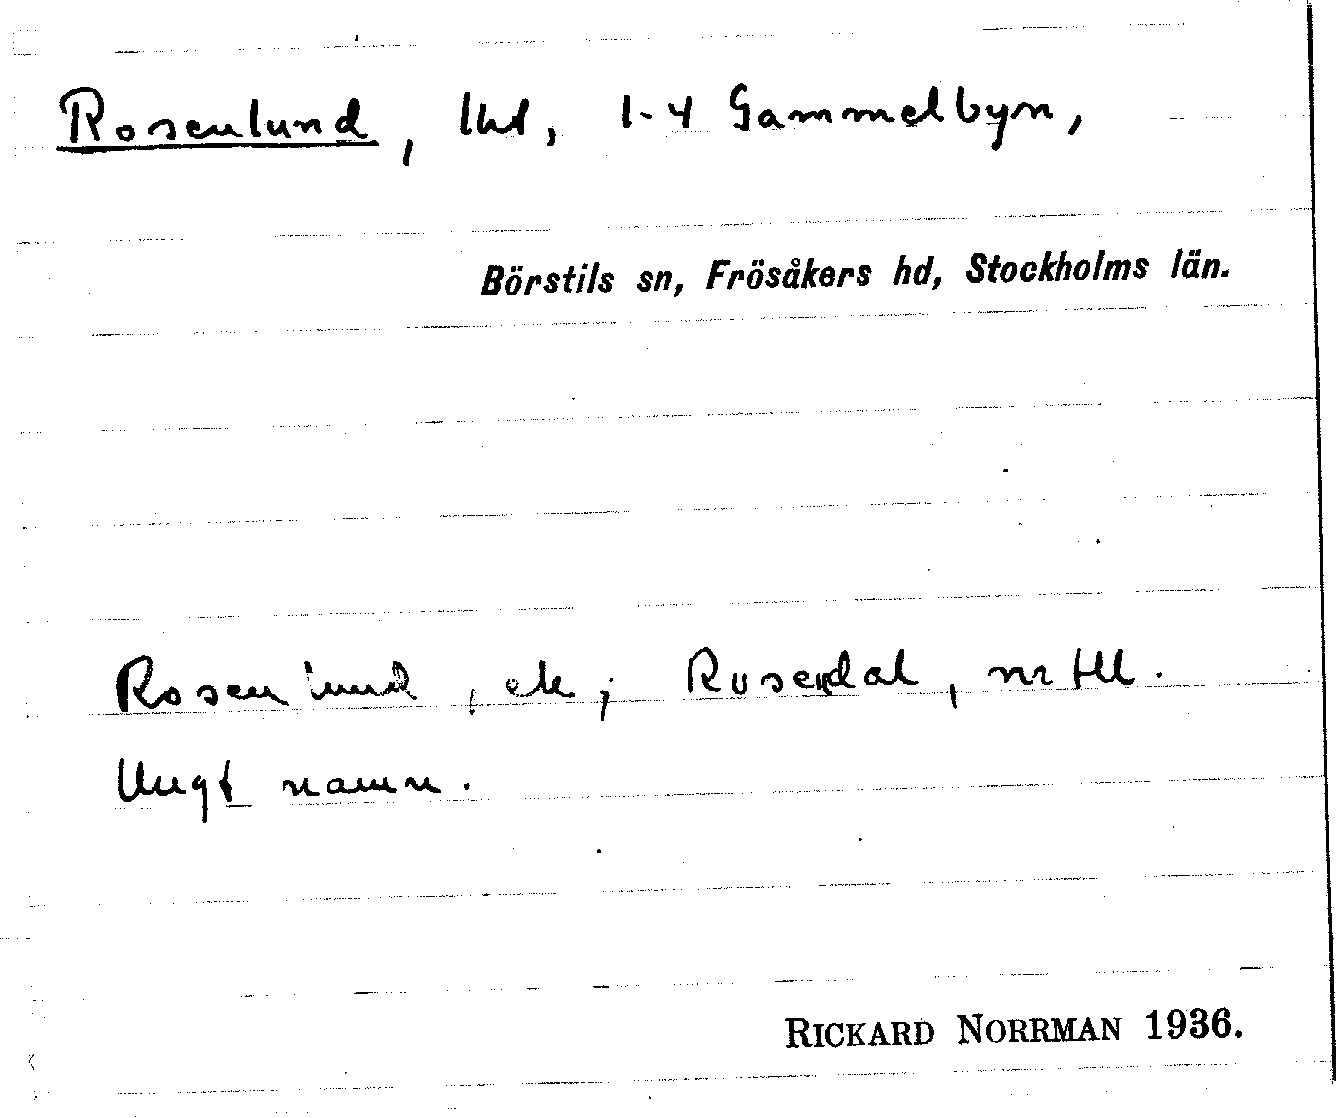 Rosenlund, lht, 1-4 Gammelbyn,
Börstils sn, Frösåkers hd, Stockholms län.
Rosenlund, ek; Rosendal, mtll.
Ungt namn.
RICKARD NORRMAN 1936.